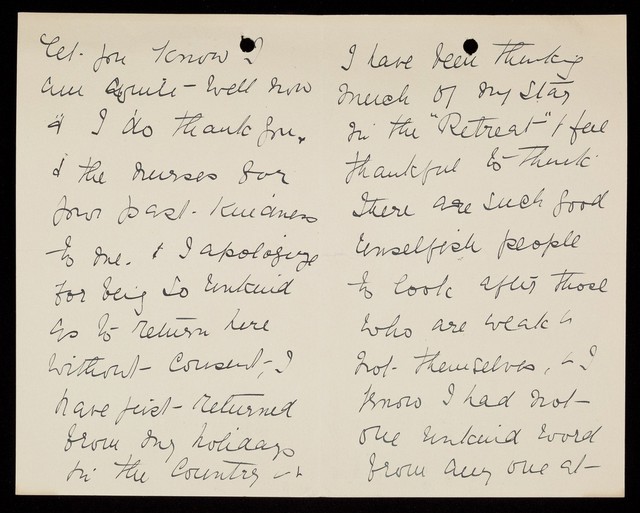 let you know I
am quite well now
& I do thank you,
& the nurses for
your past kindness
to me. & I apologize
for being so unkind
as to return here
without consent, I
have just returned
from my holidays
in the Country &
I have been thinking
much of my stay
in the "Retreat" & feel
thankful to think
there are such good
unselfish people
to look after those
who are weak &
not themselves, & I
know I had not
one unkind word
from any one at